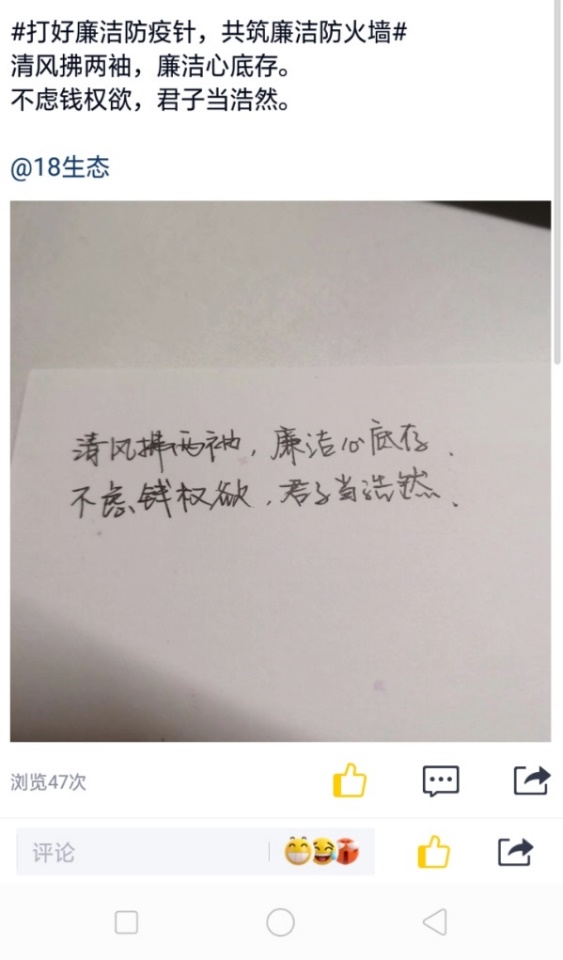 #打好廉洁防疫针，共筑廉洁防火墙#
清风拂两袖，廉洁心底存。
不虑钱权欲，君子当浩然。
@18生态
清风拂两袖，廉洁心底存.
不虑钱权欲，君子当浩然.
浏览47次
评论